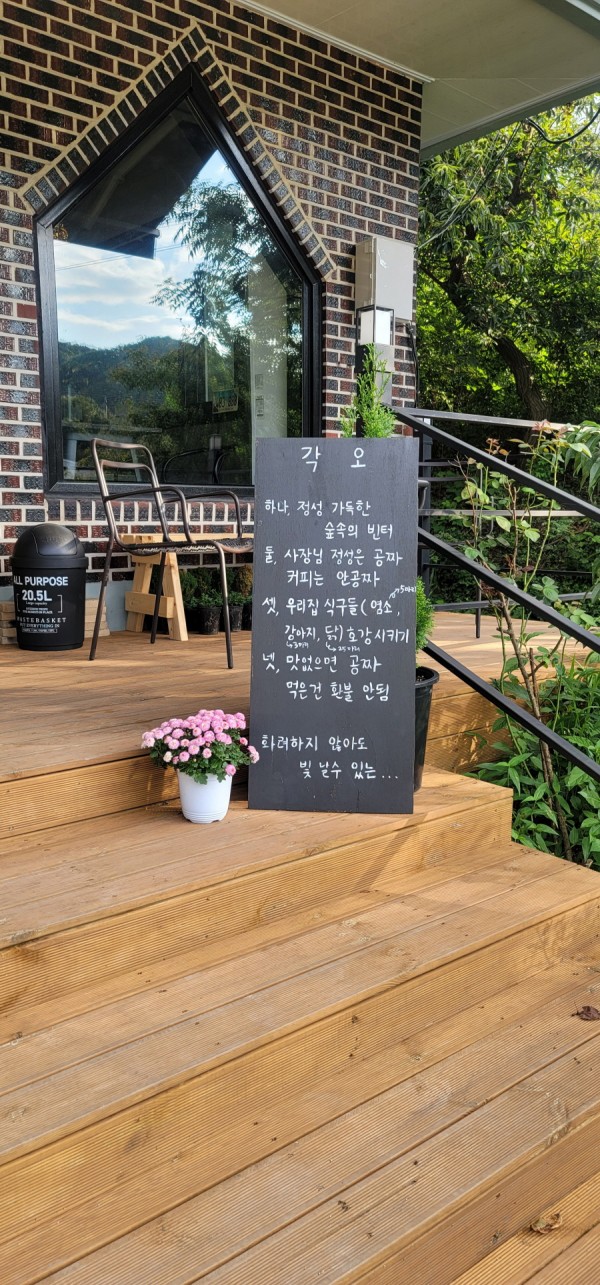 각 오
하나, 정성 가득한
숲속의 빈터
둘, 사장님 정성은 공짜
커피는 안공짜
셋, 우리집 식구들(염소,
강아지, 닭) 호강시키기
넷, 맛없으면 공짜
먹은건 환불 안됨
화려하지 않아도
빛 날수 있는...
ALL PURPOSE
20.5L
WASTEBASKET